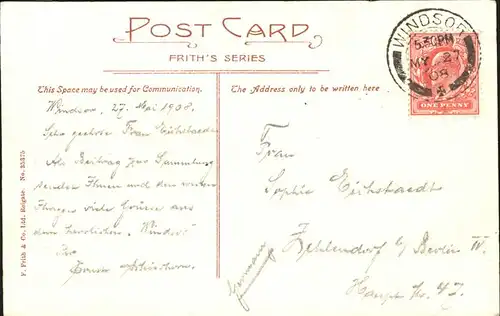 POST CARD
FRITH'S SERIES
This Space may be used for Communication.
The Address only to be written here
WINDSOR
5.30PM
MY 27
08
ONE PENNY
Windsor, 27. Mai 1908.
Sehr geehrte Frau Eichstaedt
Als Beitrag zur Sammlung
sendet Ihnen und den werten
Ihrigen viele Grüsse aus
dem herrlichen "Windsor"
Ihr
Frau
Sophie Eichstaedt
Zehlendorf b/ Berlin W.
Haupt Str. 47.
Germany
F. Frith & Co. Ltd. Reigate. No. 35375